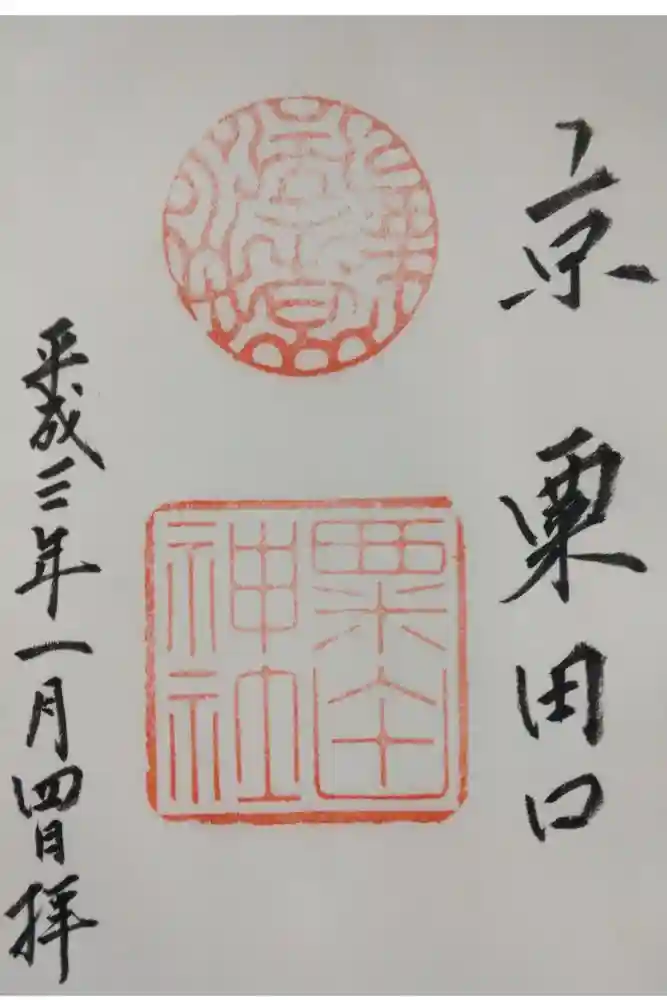 京 粟田口
粟
神社
平成三年一月四日拝